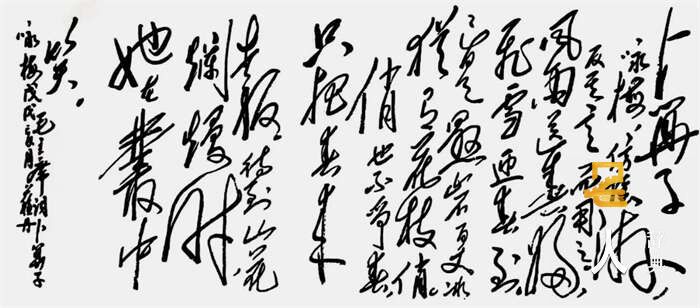 卜算子
咏梅
反其意而用之
风雨送春归
飞雪迎春到
已是悬岩百丈冰
犹有花枝俏
俏也不争春
只把春来
报待到山花
烂熳时
她在丛中
笑
毛主席词卜算子
咏梅戊戌